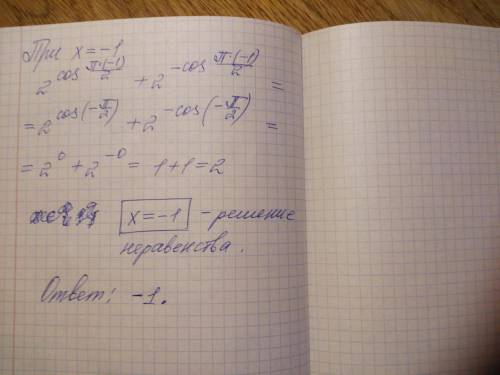 При x = -1
2^{cos \frac{π·(-1)}{2}} + 2^{-cos \frac{π·(-1)}{2}} =
= 2^{cos(-\frac{π}{2})} + 2^{-cos(-\frac{π}{2})} =
= 2^0 + 2^{-0} = 1 + 1 = 2
x = -1 - решение
неравенства.
Ответ: -1.